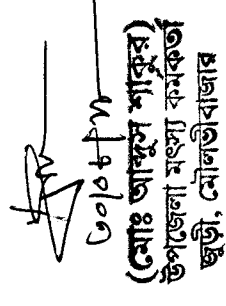 (মোঃ আব্দুস শাকুর)
উপজেলা মৎস্য কর্মকর্তা
জুড়ী, মৌলভীবাজার